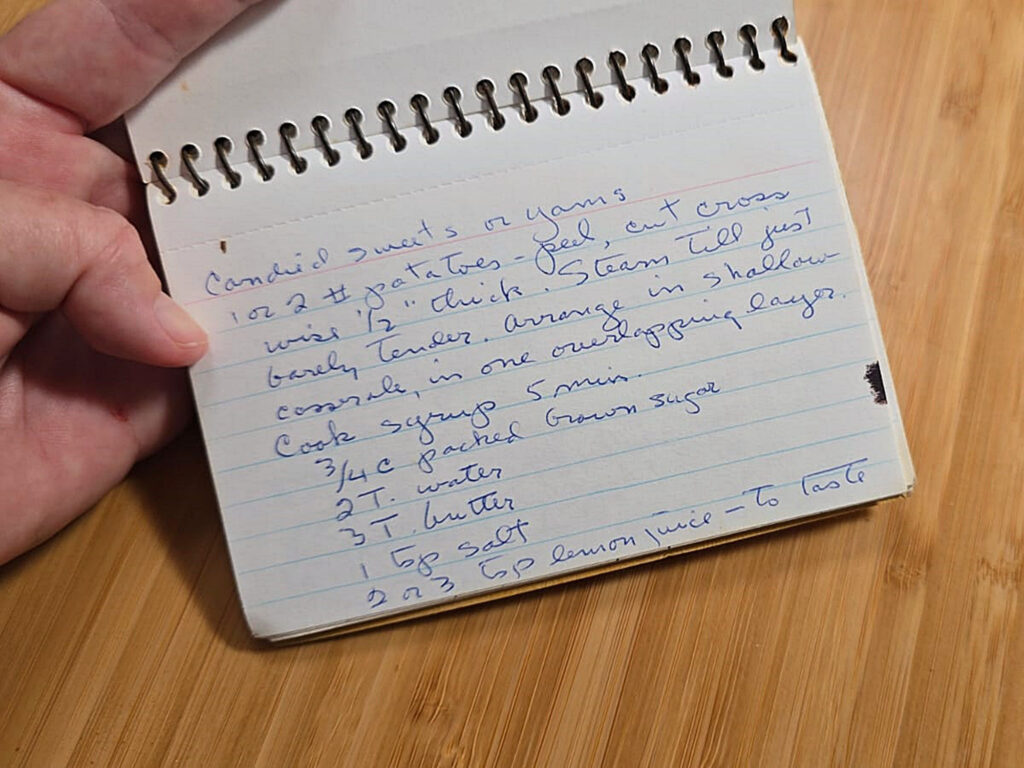 Candied sweets or yams
1 or 2 # potatoes - peel, cut cross
wise 1/2" thick. Steam till just
barely tender. Arrange in shallow
casserole, in one overlapping layer.
Cook syrup 5 min.
3/4 c packed brown sugar
2 T. water
3 T. butter
1 tsp salt
2 or 3 tsp lemon juice - to taste